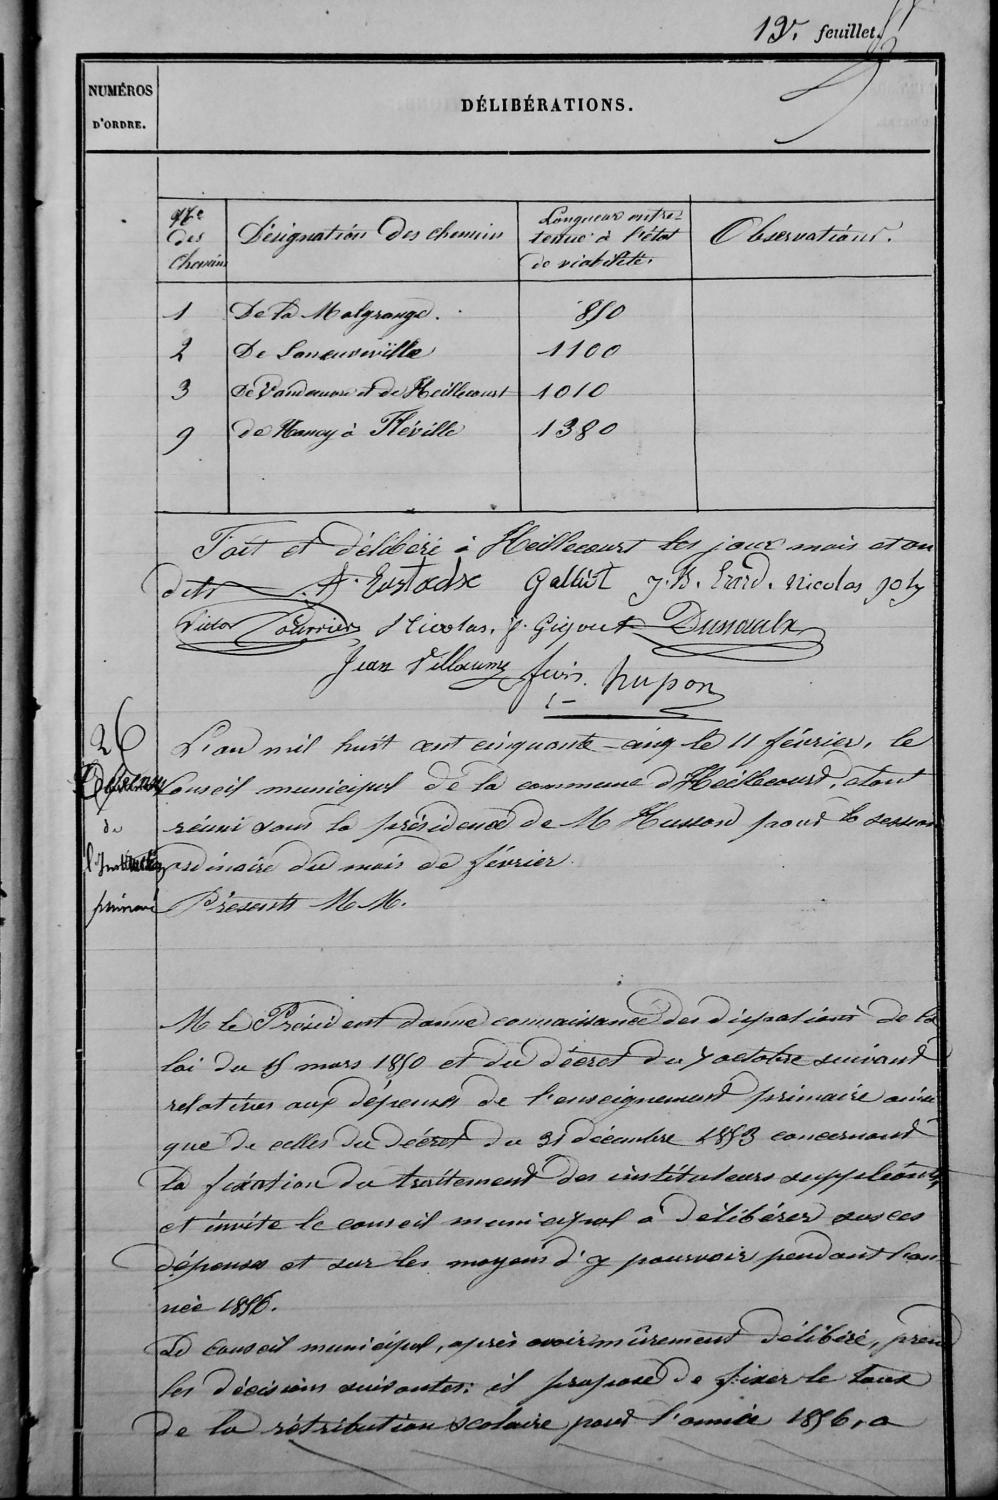 19. feuillet.
NUMÉROS
D'ORDRE.
DÉLIBÉRATIONS.
Nos
des
Chemins
Désignation des chemins
Longueur entre-
tenue à l'état
de viabilité.
Observations.
1 De la Malgrange. 850
2 De Laneuveville 1100
3 De Vandoeuvre et de Heillecourt 1010
9 de Nancy à Fléville 1380
Fait et délibéré à Heillecourt les jour mois et an
dits A. Eustache Galliot J. B. Erard. Nicolas Joly
Victor Nicolas. J. Gigout
Jean Villaume
26
de
l'Instituteur
primaire
L'an mil huit cent cinquante-cinq le 11 février, le
Conseil municipal de la commune d'Heillecourt, étant
réuni sous la présidence de M Husson pour la session
ordinaire du mois de février.
Présents M M.
M le Président donne connaissance des dispositions de la
loi du 15 mars 1850 et du décret du 7 octobre suivant
relatives aux dépenses de l'enseignement primaire ainsi
que de celles du décret du 31 décembre 1853 concernant
la fixation du traitement des instituteurs suppléants,
et invite le conseil municipal à délibérer sur ces
dépenses et sur les moyens d'y pourvoir pendant l'an-
née 1856.
Le Conseil municipal, après avoir mûrement délibéré, prend
les décisions suivantes: il propose de fixer le taux
de la rétribution scolaire pour l'année 1856, a